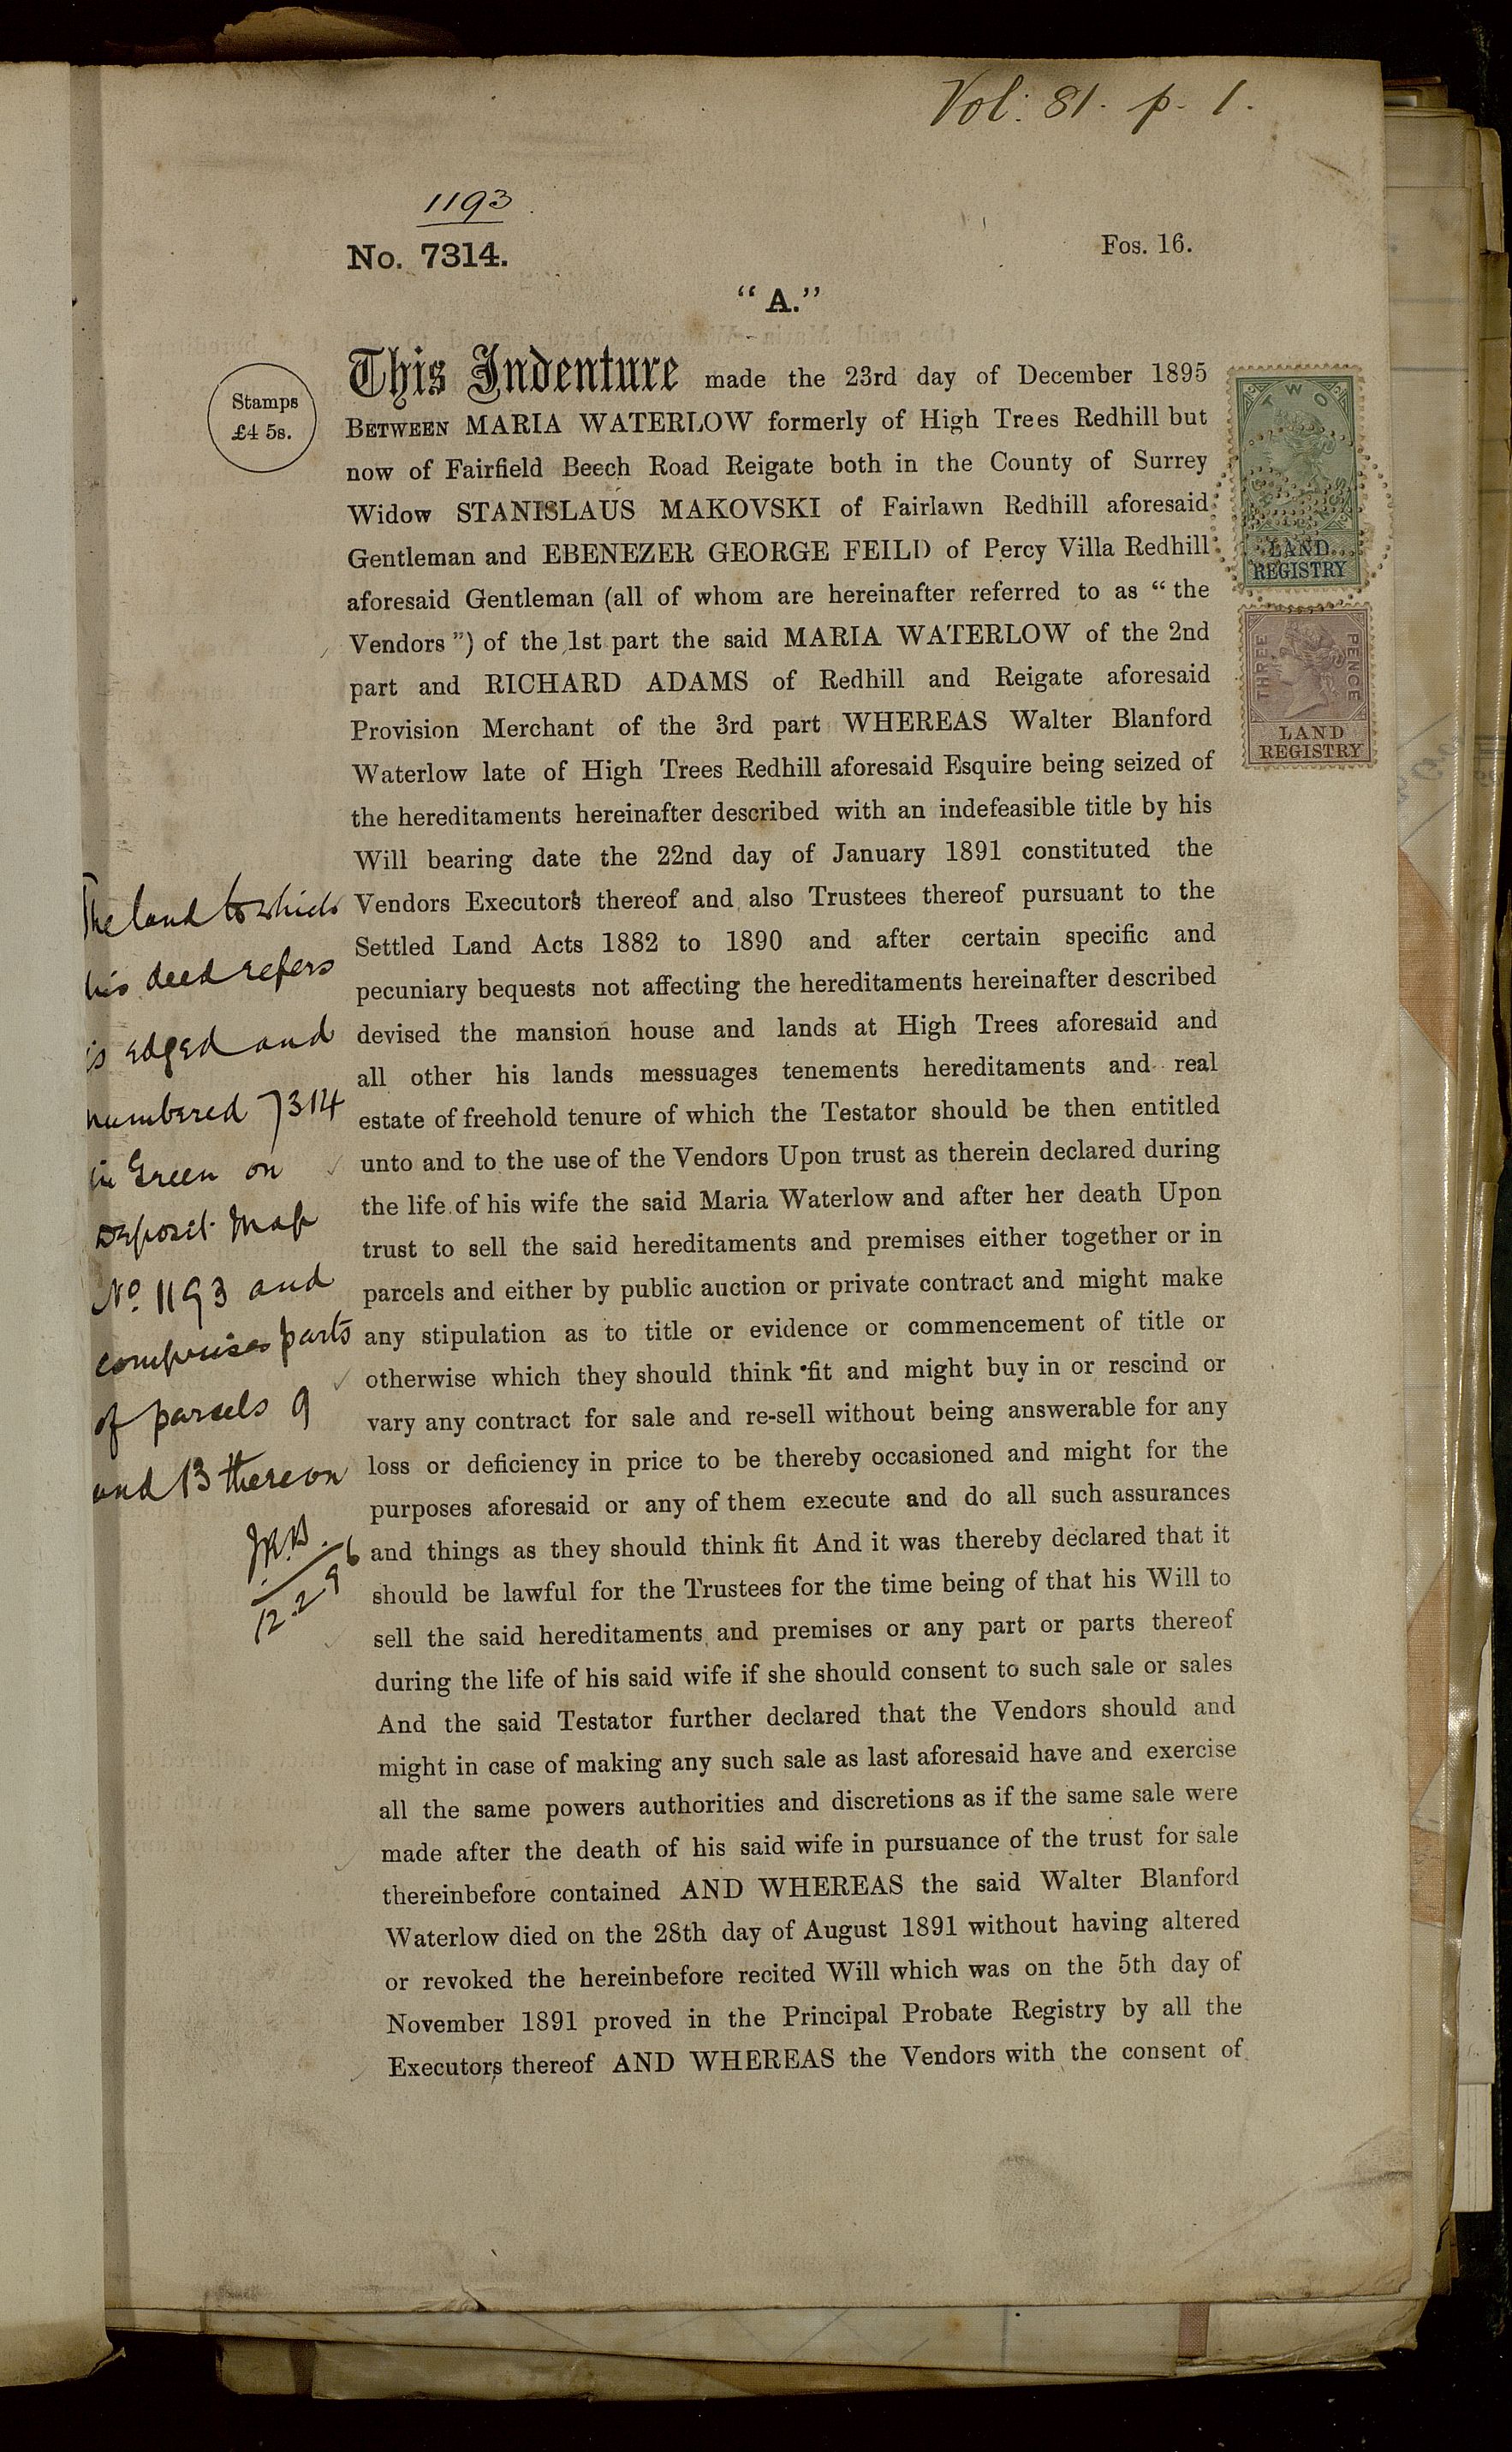 Vol: 81. p. 1.
1193
No. 7314.
Fos. 16.
“A.”
Stamps
£4 5s.
This Indenture made the 23rd day of December 1895
BETWEEN MARIA WATERLOW formerly of High Trees Redhill but
now of Fairfield Beech Road Reigate both in the County of Surrey
Widow STANISLAUS MAKOVSKI of Fairlawn Redhill aforesaid
Gentleman and EBENEZER GEORGE FEILD of Percy Villa Redhill
aforesaid Gentleman (all of whom are hereinafter referred to as “the
Vendors”) of the 1st part the said MARIA WATERLOW of the 2nd
part and RICHARD ADAMS of Redhill and Reigate aforesaid
Provision Merchant of the 3rd part WHEREAS Walter Blanford
Waterlow late of High Trees Redhill aforesaid Esquire being seized of
the hereditaments hereinafter described with an indefeasible title by his
Will bearing date the 22nd day of January 1891 constituted the
Vendors Executors thereof and also Trustees thereof pursuant to the
Settled Land Acts 1882 to 1890 and after certain specific and
pecuniary bequests not affecting the hereditaments hereinafter described
devised the mansion house and lands at High Trees aforesaid and
all other his lands messuages tenements hereditaments and real
estate of freehold tenure of which the Testator should be then entitled
unto and to the use of the Vendors Upon trust as therein declared during
the life of his wife the said Maria Waterlow and after her death Upon
trust to sell the said hereditaments and premises either together or in
parcels and either by public auction or private contract and might make
any stipulation as to title or evidence or commencement of title or
otherwise which they should think fit and might buy in or rescind or
vary any contract for sale and re-sell without being answerable for any
loss or deficiency in price to be thereby occasioned and might for the
purposes aforesaid or any of them execute and do all such assurances
and things as they should think fit And it was thereby declared that it
should be lawful for the Trustees for the time being of that his Will to
sell the said hereditaments and premises or any part or parts thereof
during the life of his said wife if she should consent to such sale or sales
And the said Testator further declared that the Vendors should and
might in case of making any such sale as last aforesaid have and exercise
all the same powers authorities and discretions as if the same sale were
made after the death of his said wife in pursuance of the trust for sale
thereinbefore contained AND WHEREAS the said Walter Blanford
Waterlow died on the 28th day of August 1891 without having altered
or revoked the hereinbefore recited Will which was on the 5th day of
November 1891 proved in the Principal Probate Registry by all the
Executors thereof AND WHEREAS the Vendors with the consent of
The land to which
this deed refers
is edged and
numbered 7314
in Green on
Deposit Map
No. 1193 and
comprises parts
of parcels 9
and 13 thereon
12.2.96
TWO
LAND
REGISTRY
THREE PENCE
LAND
REGISTRY